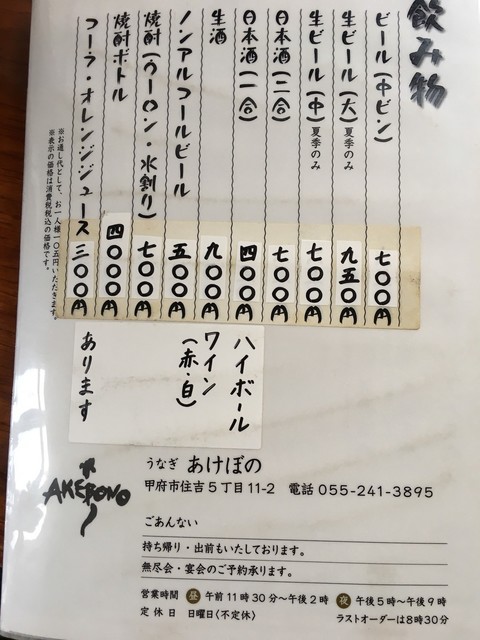 飲み物
ビール(中ビン) 七〇〇円
生ビール(大)夏季のみ 九五〇円
生ビール(中)夏季のみ 七〇〇円
日本酒(二合) 七〇〇円
日本酒(一合) 四〇〇円
生酒 九〇〇円
ノンアルコールビール 五〇〇円
焼酎(ウーロン・水割り) 七〇〇円
焼酎ボトル 四〇〇〇円
コーラ・オレンジジュース 三〇〇円
※お通し代として、お一人様一〇五円いただきます。
※表示の価格は消費税税込の価格です。
ハイボール
ワイン
(赤・白)
あります
AKEBONO
うなぎ あけぼの
甲府市住吉5丁目11-2 電話 055-241-3895
ごあんない
持ち帰り・出前もいたしております。
無尽会・宴会のご予約承ります。
営業時間 昼 午前11時30分〜午後2時 夜 午後5時〜午後9時
定休日 日曜日〈不定休〉 ラストオーダーは8時30分